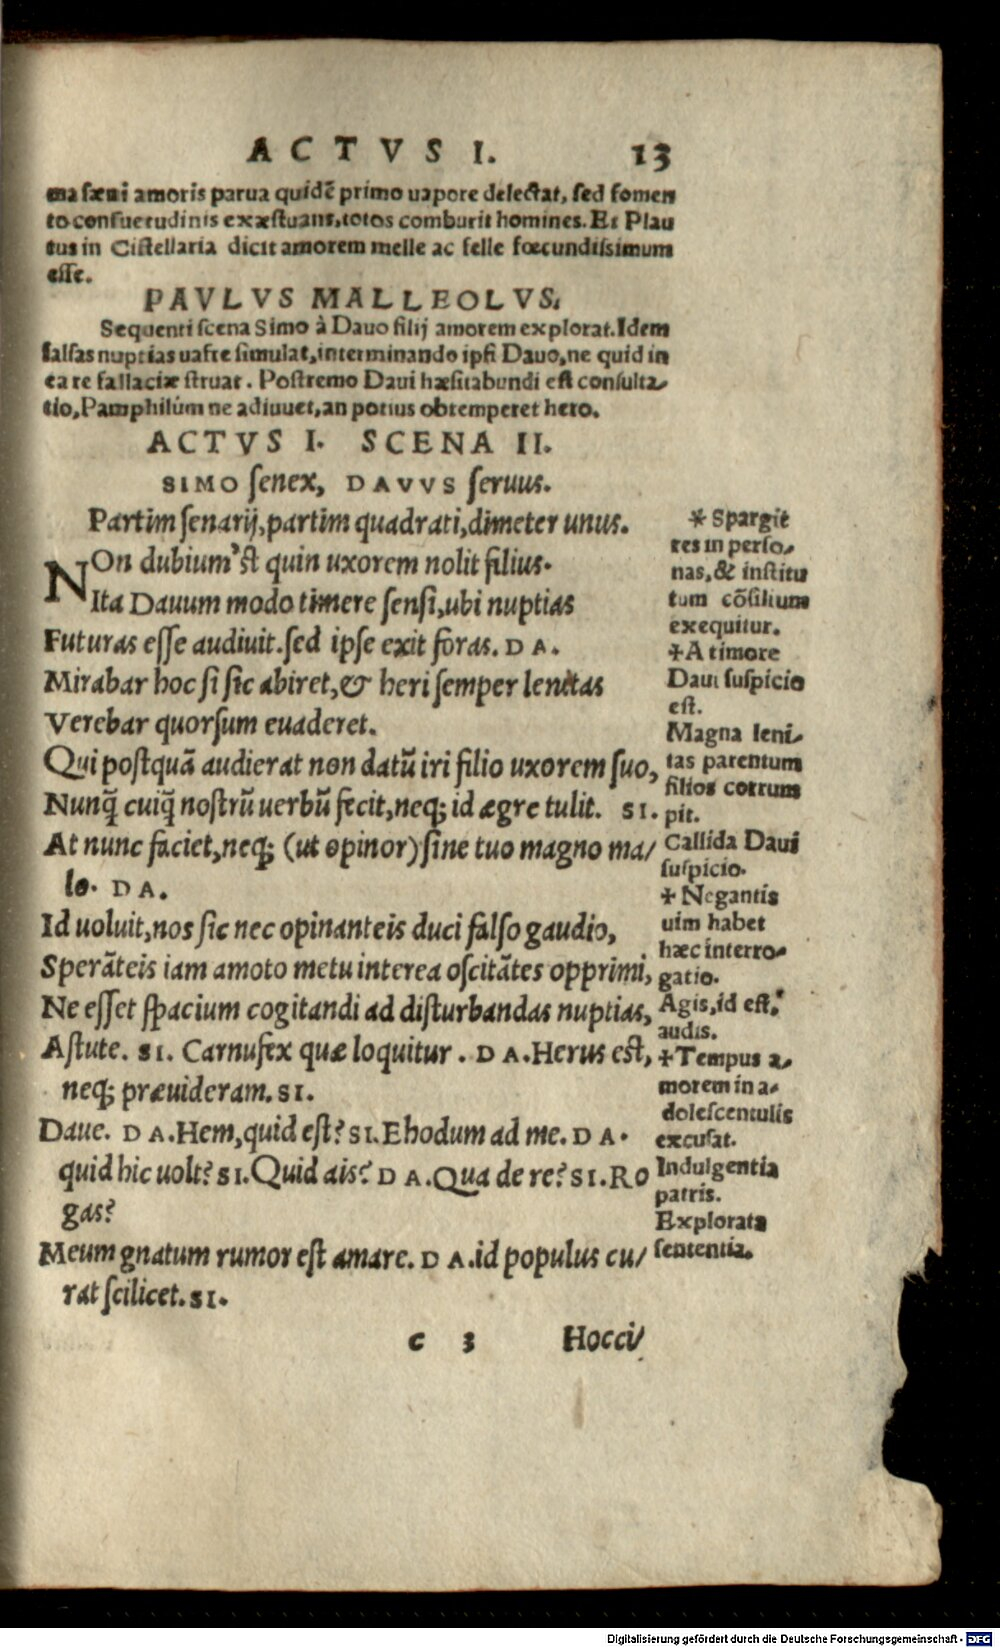 ACTVS I. 13
ma sæui amoris parua quidē primo uapore delectat, sed fomen
to consuetudinis exæstuans, totos comburit homines. Et Plau
tus in Cistellaria dicit amorem melle ac felle fœcundissimum
esse.
PAVLVS MALLEOLVS.
Sequenti scena Simo à Dauo filij amorem explorat. Idem
falsas nuptias uafre simulat, interminando ipsi Dauo, ne quid in
ea re fallaciæ struat. Postremo Daui hæsitabundi est consulta-
tio, Pamphilúm ne adiuuet, an potius obtemperet hero.
ACTVS I. SCENA II.
SIMO senex, DAVVS seruus.
Partim senarij, partim quadrati, dimeter unus.
NOn dubium'st quin uxorem nolit filius.
Ita Dauum modo timere sensi, ubi nuptias
Futuras esse audiuit. sed ipse exit foras. DA.
Mirabar hoc si sic abiret, & heri semper lenitas
Verebar quorsum euaderet.
Qui postquā audierat non datū iri filio uxorem suo,
Nunq̃ cuiq̃ nostrū uerbū fecit, neq; id ægre tulit. SI.
At nunc faciet, neq; (ut opinor) sine tuo magno ma/
lo. DA.
Id uoluit, nos sic nec opinanteis duci falso gaudio,
Sperāteis iam amoto metu interea oscitātes opprimi,
Ne esset spacium cogitandi ad disturbandas nuptias,
Astute. SI. Carnufex quæ loquitur. DA. Herus est,
neq; præuideram. SI.
Daue. DA. Hem, quid est? SI. Ehodum ad me. DA.
quid hic uolt? SI. Quid ais? DA. Qua de re? SI. Ro
gas?
Meum gnatum rumor est amare. DA. id populus cu/
rat scilicet. SI.
* Spargit
res in perso-
nas, & institu
tum cōsilium
exequitur.
✢ A timore
Daui suspicio
est.
Magna leni-
tas parentum
filios corrum
pit.
Callida Daui
suspicio.
✢ Negantis
uim habet
hæc interro-
gatio.
Agis, id est,
audis.
✢ Tempus a-
morem in a-
dolescentulis
excusat.
Indulgentia
patris.
Explorata
sententia.
c 3 Hocci/
Digitalisierung gefördert durch die Deutsche Forschungsgemeinschaft - DFG